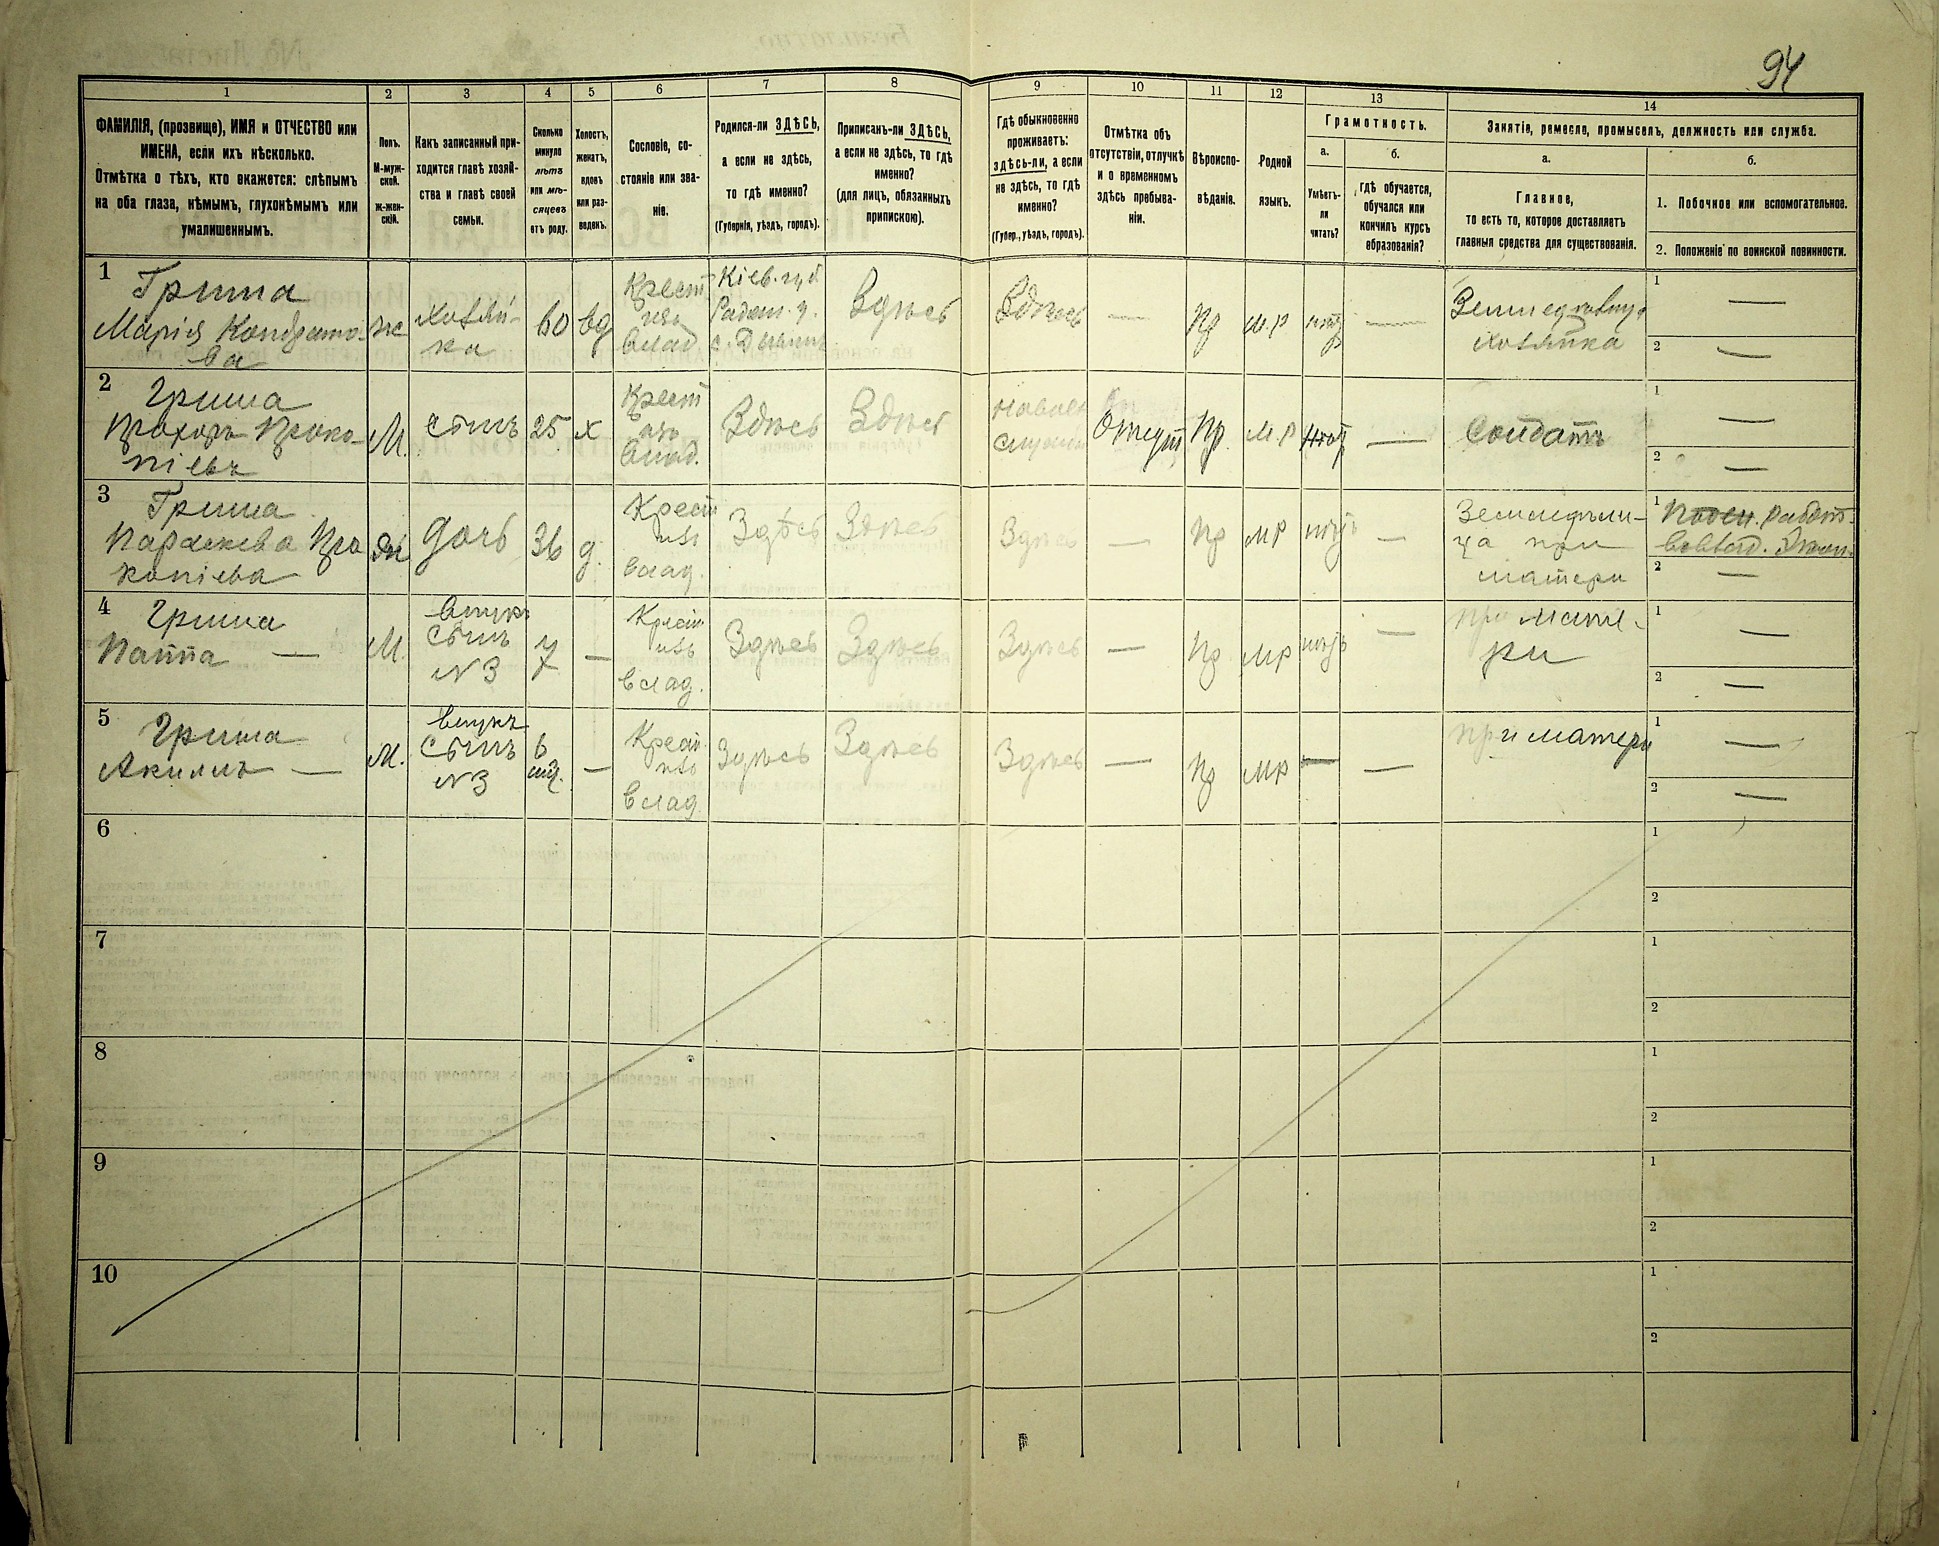 94
1
2
3
4
5
6
7
8
9
10
11
12
13
14
ФАМИЛІЯ, (прозвище), ИМЯ и ОТЧЕСТВО или
ИМЕНА, если ихъ нѣсколько.
Отмѣтка о тѣхъ, кто окажется: слѣпымъ
на оба глаза, нѣмымъ, глухонѣмымъ или
умалишеннымъ.
Полъ.
М-муж-
ской.
ж-жен-
скій.
Какъ записанный при-
ходится главѣ хозяй-
ства и главѣ своей
семьи.
Сколько
минуло
лѣтъ
или мѣ-
сяцевъ
отъ роду.
Холостъ,
женатъ,
вдовъ
или раз-
веденъ.
Сословіе, со-
стояніе или зва-
ніе.
Родился-ли ЗДѢСЬ,
а если не здѣсь,
то гдѣ именно?
(Губернія, уѣздъ, городъ).
Приписанъ-ли ЗДѢСЬ,
а если не здѣсь, то гдѣ
именно?
(для лицъ, обязанныхъ
припискою).
Гдѣ обыкновенно
проживаетъ:
здѣсь-ли, а если
не здѣсь, то гдѣ
именно?
(Губер., уѣздъ, городъ).
Отмѣтка объ
отсутствіи, отлучкѣ
и о временномъ
здѣсь пребыва-
ніи.
Вѣроиспо-
вѣданіе.
Родной
языкъ.
Грамотность.
а.
Умѣетъ-
ли
читать?
б.
гдѣ обучается,
обучался или
кончилъ курсъ
образованія?
Занятіе, ремесло, промыселъ, должность или служба.
а.
Главное,
то есть то, которое доставляетъ
главныя средства для существованія.
б.
1. Побочное или вспомогательное.
2. Положеніе по воинской повинности.
1
Гриша
Марія Кондрато-
ва
же
хозяй-
ка
60
вд
Крест
изъ
влад
Кіев. губ
Радом. у.
Здѣсь
Здѣсь
—
пр
м.р
нѣтъ
—
хозяйка
1 —
2 —
2
Гриша
Прохоръ Проко-
піевъ
М.
сынъ
25
х
Крест
изъ
влад.
Здѣсь
Здѣсь
Отсут
пр.
м.р
нѣтъ
—
Солдатъ
1 —
2 —
3
Гриша
Параскева Про
копіева
дочь
36
д.
Крест
изъ
влад.
Здѣсь
Здѣсь
Здѣсь
—
пр
мр
нѣтъ
—
Земледѣли-
ца при
матери
1 Поден. работ.
2 —
4
Гриша
Паппа —
М.
внукъ
Сынъ
N 3
7
—
Крест
изъ
влад.
Здѣсь
Здѣсь
Здѣсь
—
пр
мр
нѣтъ
—
при мате-
ри
1 —
2 —
5
Гриша
Акимъ —
М.
внукъ
Сынъ
N 3
6
мѣс.
—
Крест
изъ
влад.
Здѣсь
Здѣсь
Здѣсь
—
пр
мр
—
—
при матери
1 —
2 —
6
1
2
7
1
2
8
1
2
9
1
2
10
1
2